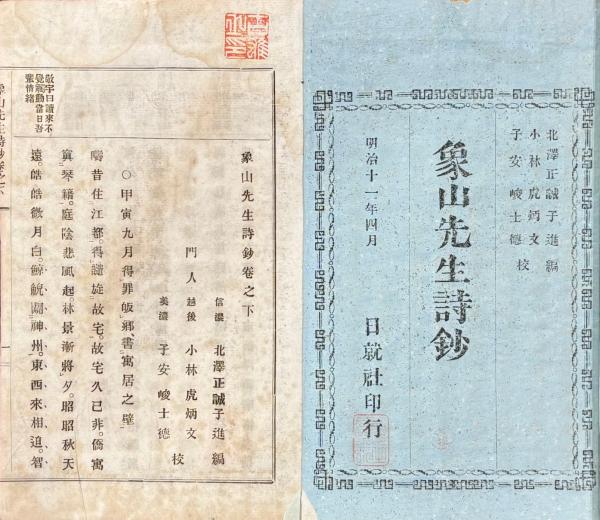 北澤正誠子進編
小林虎炳文
子安峻士德 校
象山先生詩鈔
明治十一年四月
日就社印行
象山先生詩鈔卷之下
信濃 北澤正誠子進 編
門人 越後 小林虎炳文
美濃 子安峻士德 校
○甲寅九月得罪皈鄉書寓居之壁
疇昔住江都。得謹旋故宅。故宅久已非。僑寓
寘琴籍。庭陰悲風起。林景漸將夕。昭昭秋天
遠。皓皓微月白。鯨鯢闞神州。東西來相迫。智
敬宇曰讀來不
覺飜動當日吾
輩情緒
象山先生詩鈔卷之下